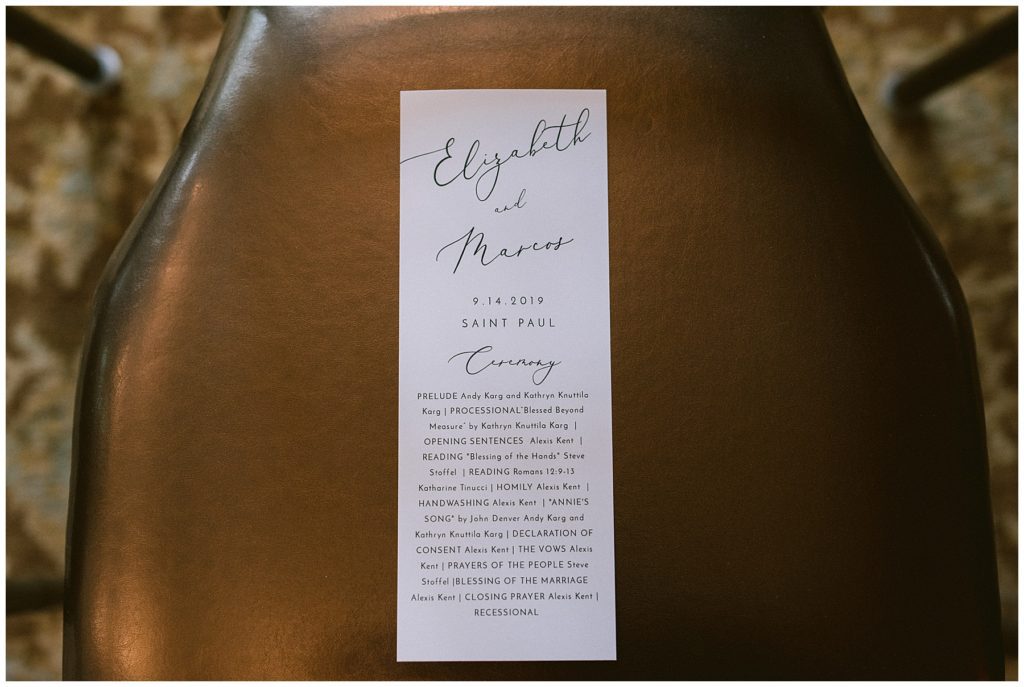 Elizabeth
and
Marcos
9.14.2019
SAINT PAUL
Ceremony
PRELUDE Andy Karg and Kathryn Knuttila
Karg | PROCESSIONAL"Blessed Beyond
Measure" by Kathryn Knuttila Karg |
OPENING SENTENCES Alexis Kent |
READING "Blessing of the Hands" Steve
Stoffel | READING Romans 12:9-13
Katharine Tinucci | HOMILY Alexis Kent |
HANDWASHING Alexis Kent | "ANNIE'S
SONG" by John Denver Andy Karg and
Kathryn Knuttila Karg | DECLARATION OF
CONSENT Alexis Kent | THE VOWS Alexis
Kent | PRAYERS OF THE PEOPLE Steve
Stoffel |BLESSING OF THE MARRIAGE
Alexis Kent | CLOSING PRAYER Alexis Kent |
RECESSIONAL